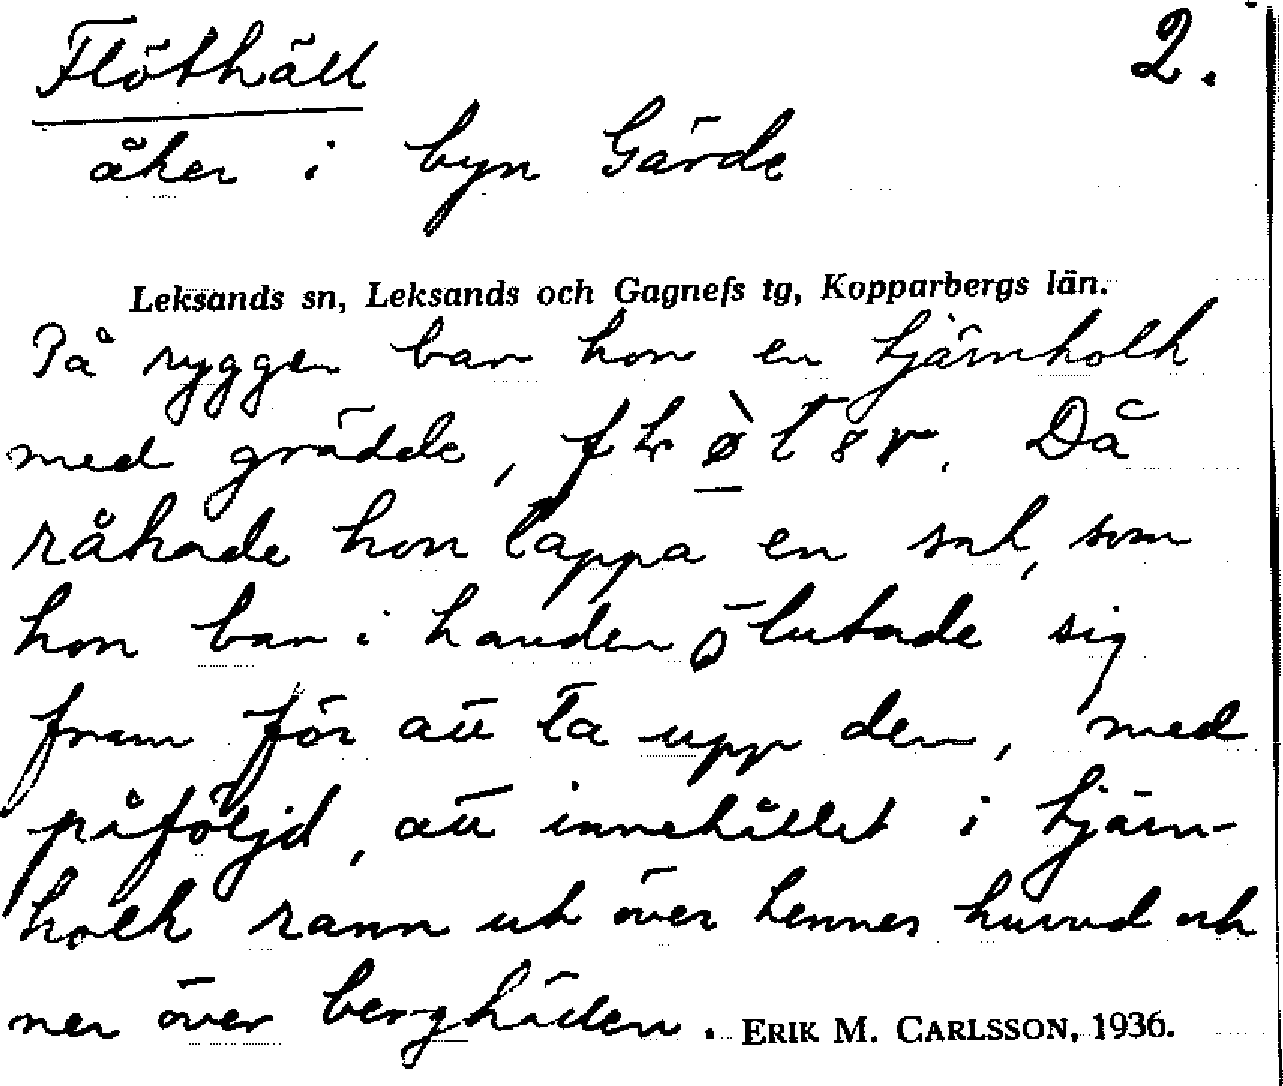 Flöthäll
2.
åker i byn Gärde
Leksands sn, Leksands och Gagnefs tg, Kopparbergs län.
På ryggen bar hon en tjärnholk
med grädde, Då
råkade hon tappa en sak, som
hon bar i handen o lutade sig
fram för att ta upp den, med
påföljd, att innehållet i tjärn-
holk rann ut över hennes huvud och
ner över berghällen. ERIK M. CARLSSON, 1936.